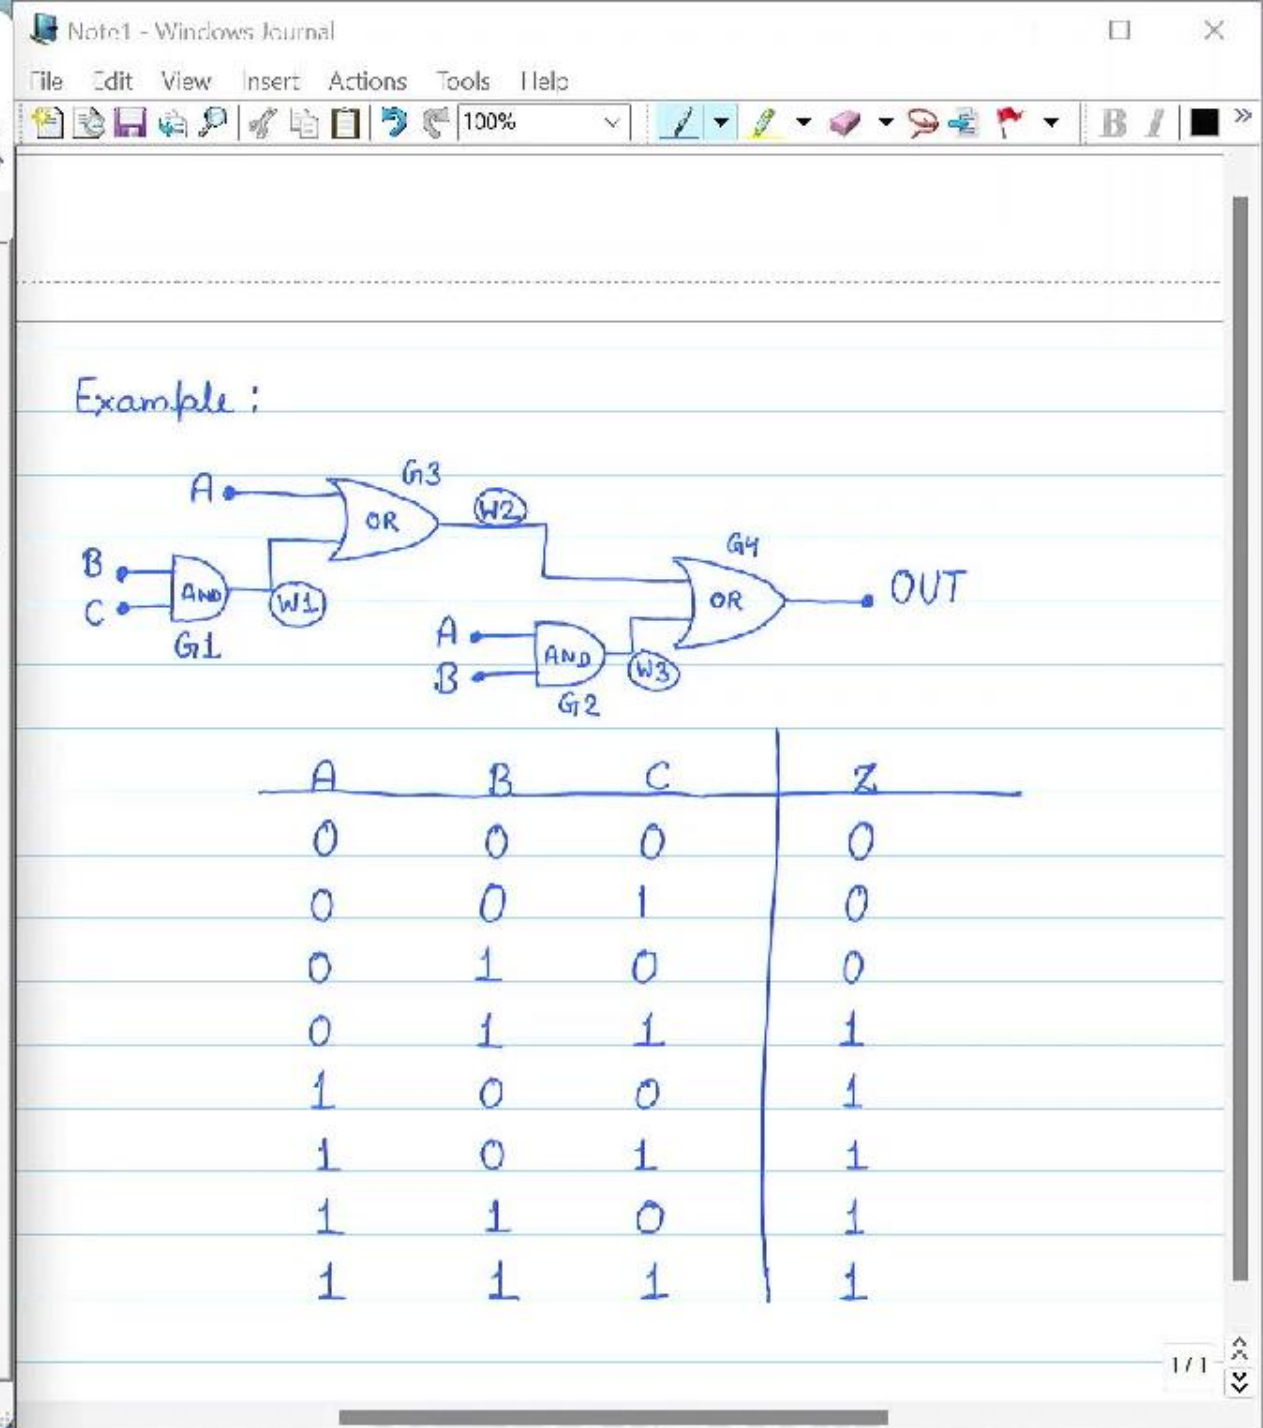 Note1 - Windows Journal
File Edit View Insert Actions Tools Help
100%
B I
Example :
G3
A
OR
W2
G4
B
AND
W1
OR
OUT
C
G1
A
AND
W3
B
G2
A B C Z
0 0 0 0
0 0 1 0
0 1 0 0
0 1 1 1
1 0 0 1
1 0 1 1
1 1 0 1
1 1 1 1
1 / 1